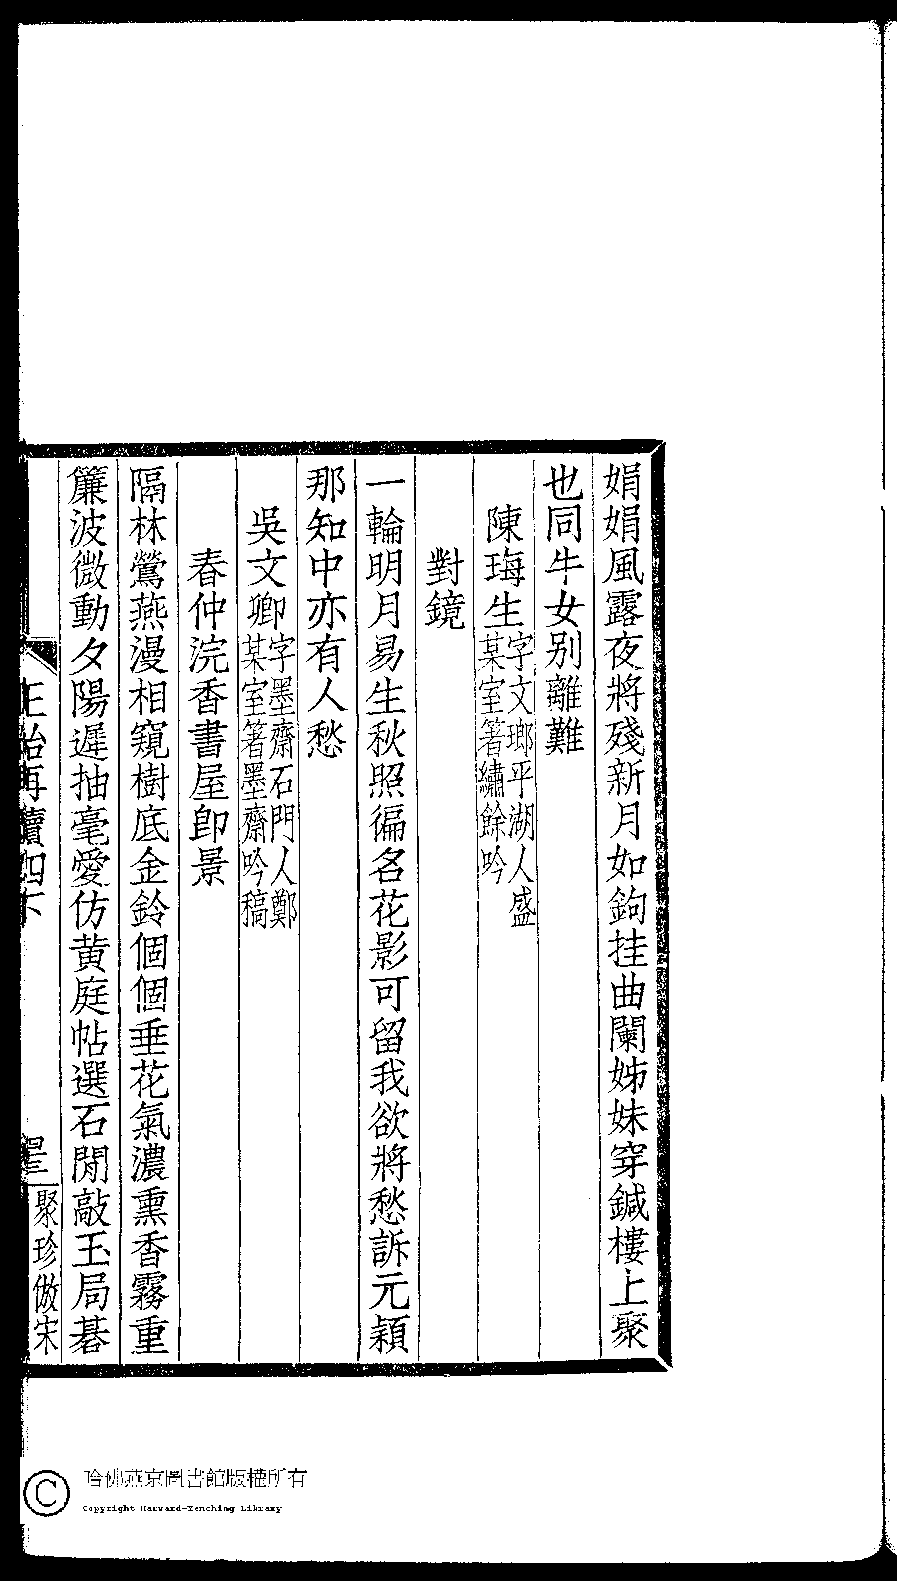 娟娟風露夜將殘新月如鉤挂曲闌姊妹穿鍼樓上聚
也同牛女别離難
陳珻生字文瑯平湖人盛
某室著繡餘吟
對鏡
一輪明月易生秋照徧名花影可留我欲將愁訴元穎
那知中亦有人愁
吳文卿字墨齋石門人鄭
某室著墨齋吟稿
春仲浣香書屋卽景
隔林鶯燕漫相窺樹底金鈴個個垂花氣濃熏香霧重
簾波微動夕陽遲抽毫愛仿黄庭帖選石閒敲玉局碁
正始再續四下
聚珍倣宋
哈佛燕京圖書館版權所有
Copyright Harvard-Yenching Library